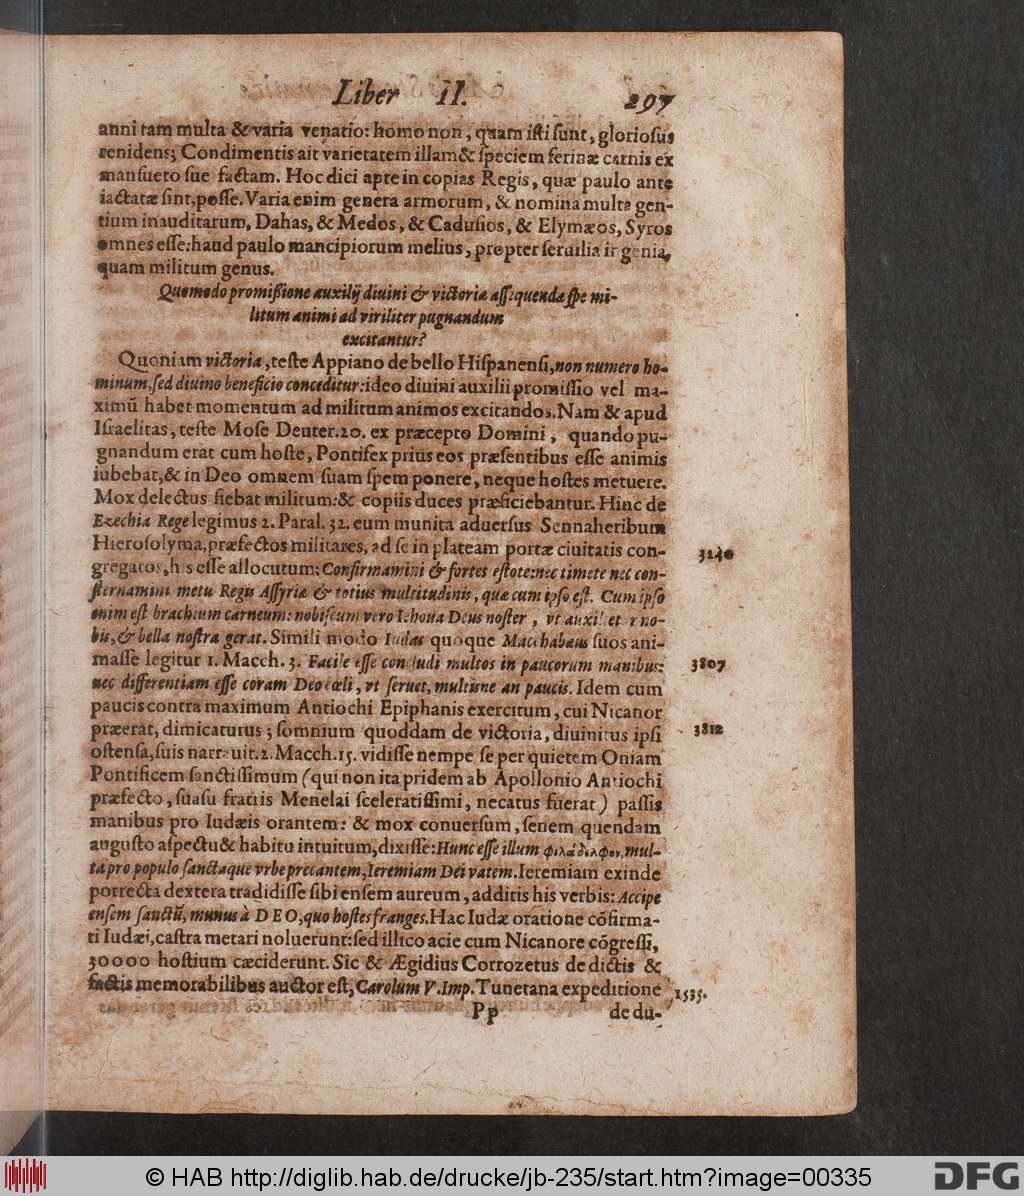 Liber II. 297
anni tam multa & varia venatio: homo non, quam iſti ſunt, glorioſus
renidens; Condimentis ait varietatem illam & ſpeciem ferinæ carnis ex
manſueto ſue factam. Hoc dici apte in copias Regis, quæ paulo ante
iactatæ ſint, poſſe. Varia enim genera armorum, & nomina multa gen-
tium inauditarum, Dahas, & Medos, & Caduſios, & Elymæos, Syros
omnes eſſe: haud paulo mancipiorum melius, propter ſeruilia ingenia,
quam militum genus.
Quomodo promißione auxilij diuini & victoriæ aſſequendæ ſpe mi-
litum animi ad viriliter pugnandum
excitantur?
Quoniam victoria, teſte Appiano de bello Hiſpanenſi, non numero ho-
minum, ſed diuino beneficio conceditur: ideo diuini auxilii promiſſio vel ma-
ximũ habet momentum ad militum animos excitandos. Nam & apud
Iſraelitas, teſte Moſe Deuter. 20. ex præcepto Domini, quando pu-
gnandum erat cum hoſte, Pontifex prius eos præſentibus eſſe animis
iubebat, & in Deo omnem ſuam ſpem ponere, neque hoſtes metuere.
Mox delectus fiebat militum: & copiis duces præficiebantur. Hinc de
Ezechia Rege legimus 2. Paral. 32. eum munita aduerſus Sennaheribum
Hieroſolyma, præfectos militares, ad ſe in plateam portæ ciuitatis con- 3240
gregatos, his eſſe allocutum: Confirmamini & fortes eſtote: nec timete nec con-
ſternamini metu Regis Aſſyriæ & totius multitudinis, quæ cum ipſo eſt. Cum ipſo
enim eſt brachium carneum: nobiſcum vero Iehoua Deus noſter, vt auxilietur no-
bis, & bella noſtra gerat. Simili modo Iudas quoque Macchabæus ſuos ani-
maſſe legitur 1. Macch. 3. Facile eſſe concludi multos in paucorum manibus: 3807
nec differentiam eſſe coram Deo cœli, vt ſeruet, multisne an paucis. Idem cum
paucis contra maximum Antiochi Epiphanis exercitum, cui Nicanor
præerat, dimicaturus; ſomnium quoddam de victoria, diuinitus ipſi 3812
oſtenſa, ſuis narrauit. 2. Macch. 15. vidiſſe nempe ſe per quietem Oniam
Pontificem ſanctiſſimum (qui non ita pridem ab Apollonio Antiochi
præfecto, ſuaſu fratris Menelai ſceleratiſſimi, necatus fuerat) paſſis
manibus pro Iudæis orantem: & mox conuerſum, ſenem quendam
auguſto aſpectu & habitu intuitum, dixiſſe: Hunc eſſe illum φιλάδελφον, mul-
ta pro populo ſanctaque vrbe precantem, Ieremiam Dei vatem. Ieremiam exinde
porrecta dextera tradidiſſe ſibi enſem aureum, additis his verbis: Accipe
enſem ſanctũ, munus à DEO, quo hoſtes franges. Hac Iudæ oratione cõfirma-
ti Iudæi, caſtra metari noluerunt: ſed illico acie cum Nicanore cõgreſſi,
30000 hoſtium cæciderunt. Sic & Ægidius Corrozetus de dictis &
factis memorabilibus auctor eſt, Carolum V. Imp. Tunetana expeditione 1535.
Pp de du-
© HAB http://diglib.hab.de/drucke/jb-235/start.htm?image=00335
DFG